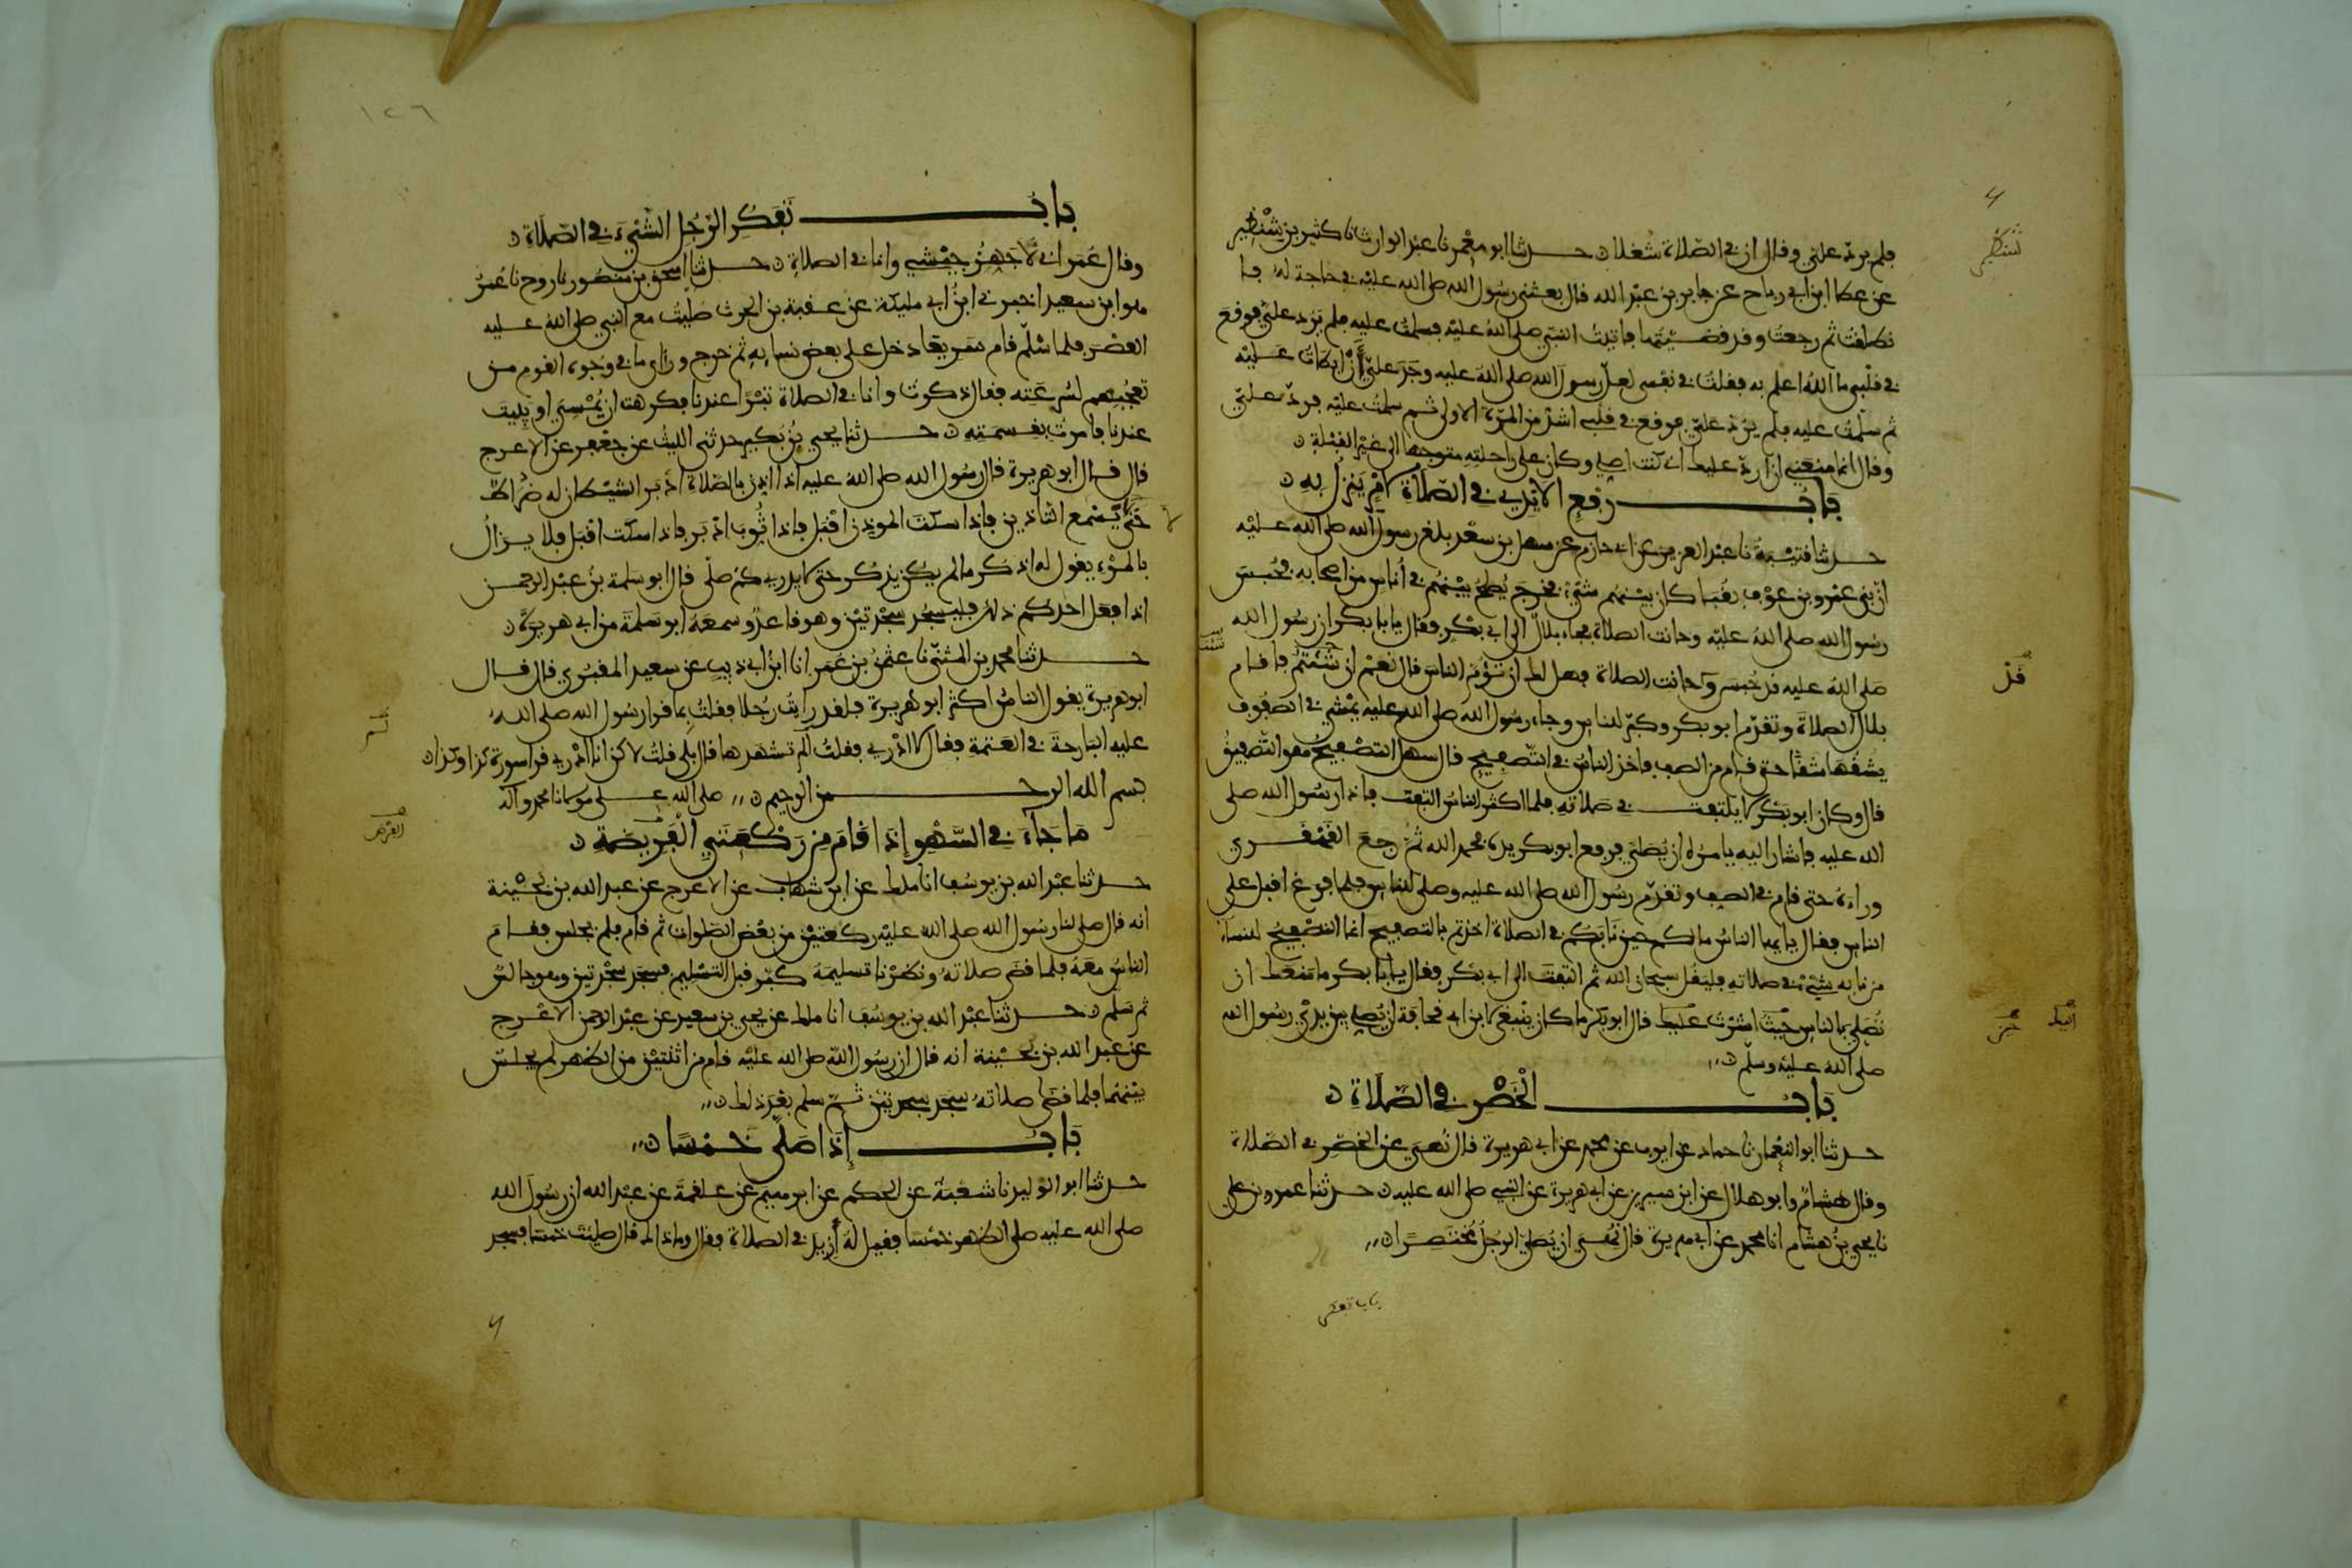 فلم يرد علي وقال ان في الصلاة شغلا ن حدثنا ابو معمر نا عبد الوارث نا كثير بن شنظير
عن عطا ابن ابي رباح عن جابر بن عبد الله قال بعثني رسول الله صلى الله عليه في حاجة له فا
نطلقت ثم رجعت وقد قضيتها فاتيت النبي صلى الله عليه فسلمت عليه فلم يرد علي فوقع
في قلبي ما الله اعلم به فقلت في نفسي لعل رسول الله صلى الله عليه وجد علي أن ابطات عليه
ثم سلمت عليه فلم يرد علي فوقع في قلبي اشد من المرة الاولى ثم سلمت عليه فرد علي
وقال انما منعني ان ارد عليك اني كنت اصلي وكان على راحلته متوجها الى غير القبلة ن
باب رفع الايدي في الصلاة لامر ينزل به ن
حدثنا قتيبة نا عبد العزيز عن ابي حازم عن سهل بن سعد بلغ رسول الله صلى الله عليه
ان بني عمرو بن عوف بقبا كان بينهم شيء فخرج يصلح بينهم في اناس من اصحابه فحبس
رسول الله صلى الله عليه وحانت الصلاة فجاء بلال الى ابي بكر فقال يا با بكر ان رسول الله
صلى الله عليه قد حبس وحانت الصلاة فهل لك ان تؤم الناس قال نعم ان شئتم فاقام
بلال الصلاة وتقدم ابو بكر وكبر للناس وجاء رسول الله صلى الله عليه يمشي في الصفوف
يشقها شقا حتى قام من الصف فاخذ الناس في التصفيح قال سهل التصفيح هو التصفيق
قال وكان ابو بكر لا يلتفت في صلاته فلما اكثر الناس التفت فاذا رسول الله صلى
الله عليه فاشار اليه يامره ان يصلي فرفع ابو بكر يده فحمد الله ثم رجع القهقرى
وراءه حتى قام في الصف وتقدم رسول الله صلى الله عليه وصلى للناس فلما فرغ اقبل على
الناس فقال يا يها الناس ما لكم حين نابكم في الصلاة اخذتم بالتصفيح انما التصفيح للنساء
من نابه شيء في صلاته فليقل سبحان الله ثم التفت الى ابي بكر فقال يا با بكر ما منعك ان
تصلي بالناس حيث اشرت عليك قال ابو بكر ما كان ينبغي لابن ابي قحافة ان يصلي بين يدي رسول الله
صلى الله عليه وسلم ن
باب الخصر في الصلاة ن
حدثنا ابو النعمان نا حماد عن ايوب عن محمد عن ابي هريرة قال نهي عن الخصر في الصلاة
وقال هشام وابو هلال عن ابن سيرين عن ابي هريرة عن النبي صلى الله عليه ن حدثنا عمرو بن علي
نا يحيى بن هشام انا محمد عن ابي هريرة قال نهي ان يصلي الرجل مختصرا ن
باب تفكر
شنظير
قد
١٢٦
باب تفكر الرجل الشيء في الصلاة ن
وقال عمر اني لاجهز جيشي وانا في الصلاة ن حدثنا اسحق بن منصور نا روح نا عمر
هو ابن سعيد اخبرني ابن ابي مليكة عن عقبة بن الحرث صليت مع النبي صلى الله عليه
العصر فلما سلم قام سريعا دخل على بعض نسايه ثم خرج وراى ما في وجوه القوم من
تعجبهم لسرعته فقال ذكرت وانا في الصلاة تبرا عندنا فكرهت ان يمسي او يبيت
عندنا فامرت بقسمته ن حدثنا يحيى بن بكير حدثني الليث عن جعفر عن الاعرج
قال قال ابو هريرة قال رسول الله صلى الله عليه اذا اذن بالصلاة ادبر الشيطان له ضراط
حتى لا يسمع التاذين فاذا سكت الموذن اقبل فاذا ثوب ادبر فاذا سكت اقبل فلا يزال
بالمرء يقول له اذكر ما لم يكن يذكر حتى لا يدري كم صلى قال ابو سلمة بن عبد الرحمن
اذا فعل احدكم ذلك فليسجد سجدتين وهو قاعد وسمعه ابو سلمة من ابي هريرة ن
حدثنا محمد بن المثنى نا عثمن بن عمر انا ابن ابي ذيب عن سعيد المقبري قال قال
ابو هريرة يقول الناس اكثر ابو هريرة فلقد رايت رجلا فقلت بما قرا رسول الله صلى الله
عليه البارحة في العتمة فقال لا ادري فقلت الم تشهدها قال بلى قلت لاكن انا ادري قرا سورة كذا وكذا ن
بسم الله الرحمن الرحيم ن صلى الله على مولانا محمد وآله
ما جاء في السهو إذا قام من ركعتي الفريضة ن
حدثنا عبد الله بن يوسف انا ملك عن ابن شهاب عن الاعرج عن عبد الله بن بحينة
انه قال صلى لنا رسول الله صلى الله عليه ركعتين من بعض الصلوات ثم قام فلم يجلس فقام
الناس معه فلما قضى صلاته ونظرنا تسليمه كبر قبل التسليم فسجد سجدتين وهو جالس
ثم سلم ن حدثنا عبد الله بن يوسف انا ملك عن يحيى بن سعيد عن عبد الرحمن الاعرج
عن عبد الله بن بحينة انه قال ان رسول الله صلى الله عليه قام من اثنتين من الظهر لم يجلس
بينهما فلما قضى صلاته سجد سجدتين ثم سلم بعد ذلك ن
باب إذا صلى خمسا ن
حدثنا ابو الوليد نا شعبة عن الحكم عن ابرهيم عن علقمة عن عبد الله ان رسول الله
صلى الله عليه صلى الظهر خمسا فقيل له أزيد في الصلاة فقال وما ذاك قال صليت خمسا فسجد